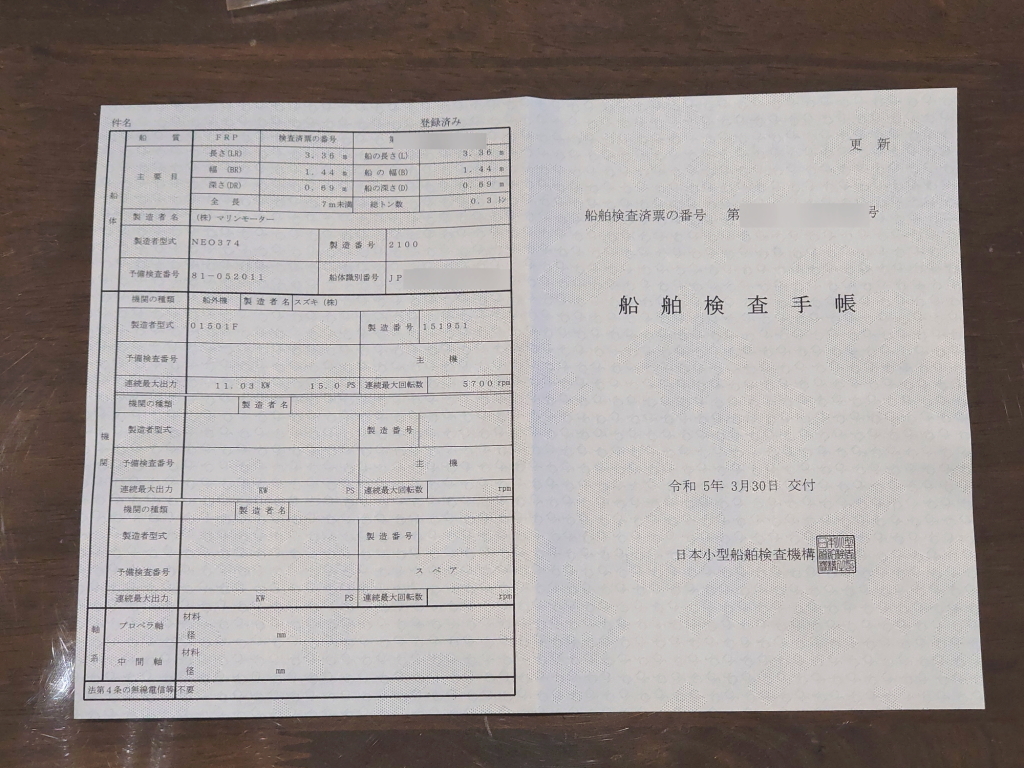 件名 登録済み
船質 FRP 検査済票の番号 第
主要目 長さ(LR) 3.36 m 船の長さ(L) 3.36 m
幅 (BR) 1.44 m 船の幅(B) 1.44 m
深さ(DR) 0.69 m 船の深さ(D) 0.69 m
全長 7m未満 総トン数 0.3 トン
船体
製造者名 (株)マリンモーター
製造者型式 NEO374 製造番号 2100
予備検査番号 81-052011 船体識別番号 JP
機関の種類 船外機 製造者名 スズキ(株)
製造者型式 01501F 製造番号 151951
予備検査番号 主機
連続最大出力 11.03 KW 15.0 PS 連続最大回転数 5700 rpm
機関の種類 製造者名
機関
製造者型式 製造番号
予備検査番号 主機
連続最大出力 KW PS 連続最大回転数 rpm
機関の種類 製造者名
製造者型式 製造番号
予備検査番号 スペア
連続最大出力 KW PS 連続最大回転数 rpm
軸系
プロペラ軸 材料
径 mm
中間軸 材料
径 mm
法第4条の無線電信等 不要
更新
船舶検査済票の番号 第 号
船舶検査手帳
令和 5年 3月30日 交付
日本小型船舶検査機構